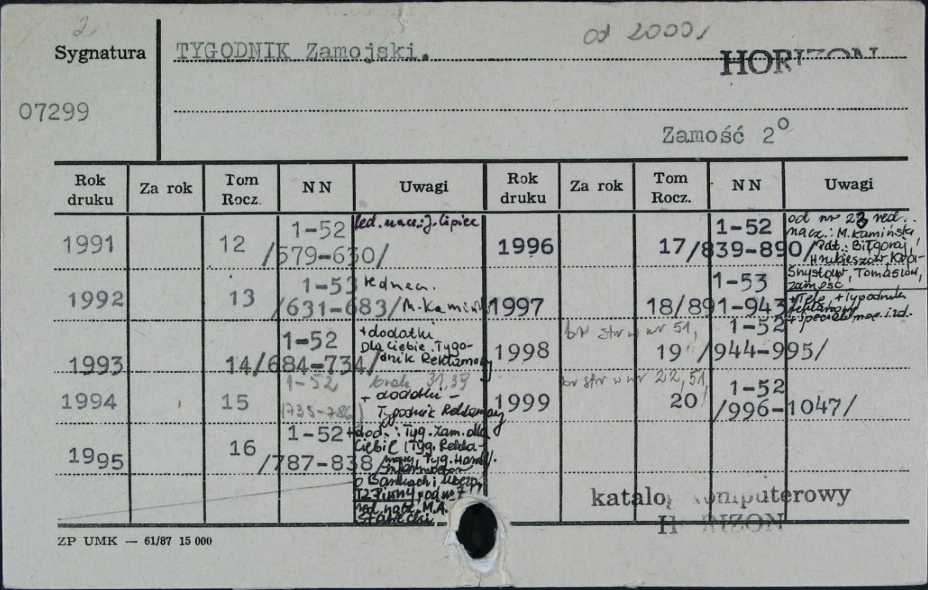 2
od 2000,
Sygnatura TYGODNIK Zamojski.
HORIZON
07299
Zamość 2°
Rok druku Za rok Tom Rocz. NN Uwagi Rok druku Za rok Tom Rocz. NN Uwagi
1991 12 1-52 /579-630/ Red. nacz.: J. Lipiec
1992 13 1-53 /631-683/ M. Kamiń
1993 14 1-52 /684-734/ + dodatki
Dla Ciebie. Tygo-
dnik Reklamowy
1994 15 1-52 /735-786/ brak 31,39
+ dodatki -
Tygodnik Reklamowy
1995 16 1-52 /787-838/ + dod.: Tyg. Zam. dla
Ciebie (Tyg. Rekla-
o Bankach i Ubezp.
red. nacz. M.A.
1996 17 1-52 /839-890/ od nr 23 red.
nacz.: M. Kamiński
Biłgoraj,
Hrubieszów, Kra-
snystaw, Tomaszów,
Zamość
1997 18 1-53 /891-943/ + Tele, + Tygodnik
Reklamowy
1998 br str w nr 51, 19 1-52 /944-995/
1999 br str w nr 22, 51, 20 1-52 /996-1047/
katalog komputerowy
HORIZON
ZP UMK — 61/87 15 000